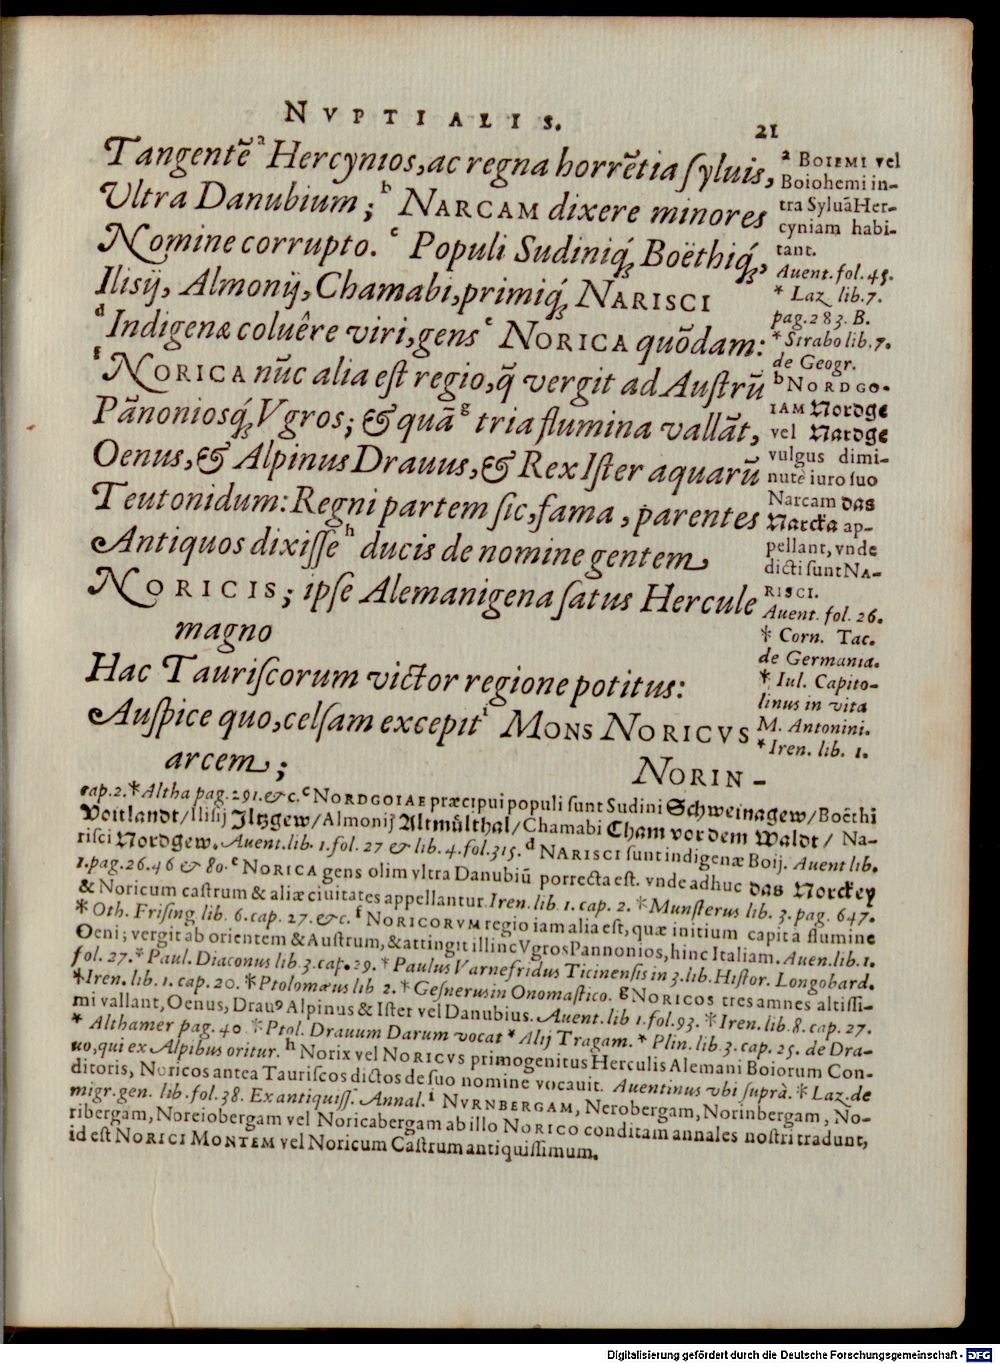 NVPTIALIS. 21
Tangentē ᵃ Hercynios, ac regna horrētia ſyluis,
Ultra Danubium; ᵇ NARCAM dixere minores
Nomine corrupto. ᶜ Populi Sudiniq́; Boëthiq́;,
Ilisij, Almonij, Chamabi, primiq́; NARISCI
ᵈ Indigenæ coluêre viri, gens ᵉ NORICA quōdam:
ᶠ NORICA nūc alia est regio, q̄ vergit ad Austrū
Pānoniosq́;, Vgros; & quā ᵍ tria flumina vallāt,
Oenus, & Alpinus Drauus, & Rex Iſter aquarū
Teutonidum: Regni partem ſic, fama, parentes
Antiquos dixiſſe ʰ ducis de nomine gentem
NORICIS; ipſe Alemanigena ſatus Hercule
magno
Hac Tauriſcorum victor regione potitus:
Auſpice quo, celſam excepit ⁱ MONS NORICVS
arcem;
NORIN-
ᵃ BOIEMI vel
Boiohemi in-
tra Syluā Her-
cyniam habi-
tant.
Auent. fol. 45.
* Laz. lib. 7.
pag. 283. B.
* Strabo lib. 7.
de Geogr.
ᵇ NORDGO-
IAM Nordge
vel Nardge
vulgus dimi-
nutè iuro ſuo
Narcam das
Narcka ap-
pellant, vnde
dicti ſunt NA-
RISCI.
Auent. fol. 26.
* Corn. Tac.
de Germania.
* Iul. Capito-
linus in vita
M. Antonini.
* Iren. lib. 1.
cap. 2. * Altha pag. 291. &c. ᶜ NORDGOIAE præcipui populi ſunt Sudini Schweinagew/ Boëthi
Voitlandt/ Iliſij Iltzgew/ Almonij Altmülthal/ Chamabi Cham vor dem Waldt/ Na-
riſci Nordgew. Auent. lib. 1. fol. 27 & lib. 4. fol. 315. ᵈ NARISCI ſunt indigenæ Boij. Auent lib.
1. pag. 26. 46 & 80. ᵉ NORICA gens olim vltra Danubiū porrecta eſt. vnde adhuc das Norckey
& Noricum caſtrum & aliæ ciuitates appellantur. Iren. lib. 1. cap. 2. * Munſterus lib. 3. pag. 647.
* Oth. Friſing lib. 6. cap. 27. &c. ᶠ NORICORVM regio iam alia eſt, quæ initium capit a flumine
Oeni; vergit ab orientem & Auſtrum, & attingit illinc Vgros Pannonios, hinc Italiam. Auen. lib. 1.
fol. 27. * Paul. Diaconus lib. 3. cap. 29. * Paulus Varnefridus Ticinenſis in 3. lib. Hiſtor. Longobard.
* Iren. lib. 1. cap. 20. * Ptolomæus lib 2. * Geſnerus in Onomaſtico. ᵍ NORICOS tres amnes altiſſi-
mi vallant, Oenus, Drauꝰ Alpinus & Iſter vel Danubius. Auent. lib 1. fol. 93. * Iren. lib. 8. cap. 27.
* Althamer pag. 40 * Ptol. Drauum Darum vocat * Alij Tragam. * Plin. lib. 3. cap. 25. de Dra-
uo, qui ex Alpibus oritur. ʰ Norix vel NORICVS primogenitus Herculis Alemani Boiorum Con-
ditoris, Noricos antea Tauriſcos dictos de ſuo nomine vocauit. Auentinus vbi ſuprà. * Laz. de
migr. gen. lib. fol. 38. Ex antiquiſſ. Annal. ⁱ NVRNBERGAM, Nerobergam, Norinbergam, No-
ribergam, Noreiobergam vel Noricabergam ab illo NORICO conditam annales noſtri tradunt,
id eſt NORICI MONTEM vel Noricum Caſtrum antiquiſſimum.
Digitalisierung gefördert durch die Deutsche Forschungsgemeinschaft - DFG